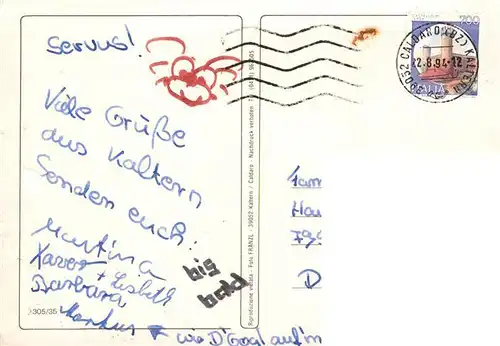 servus!
Viele Grüße
aus Kaltern
Senden euch:
Martina
Xaver + Lisbeth
Barbara
Markus
bis
bald
305/35
Riproduzione vietata - Foto FRANZL - 39052 Kaltern / Caldaro - Nachdruck verboten
700
39052 CALDARO (BZ) KALTERN
22.8.94-12
ITALIA
Fam
D